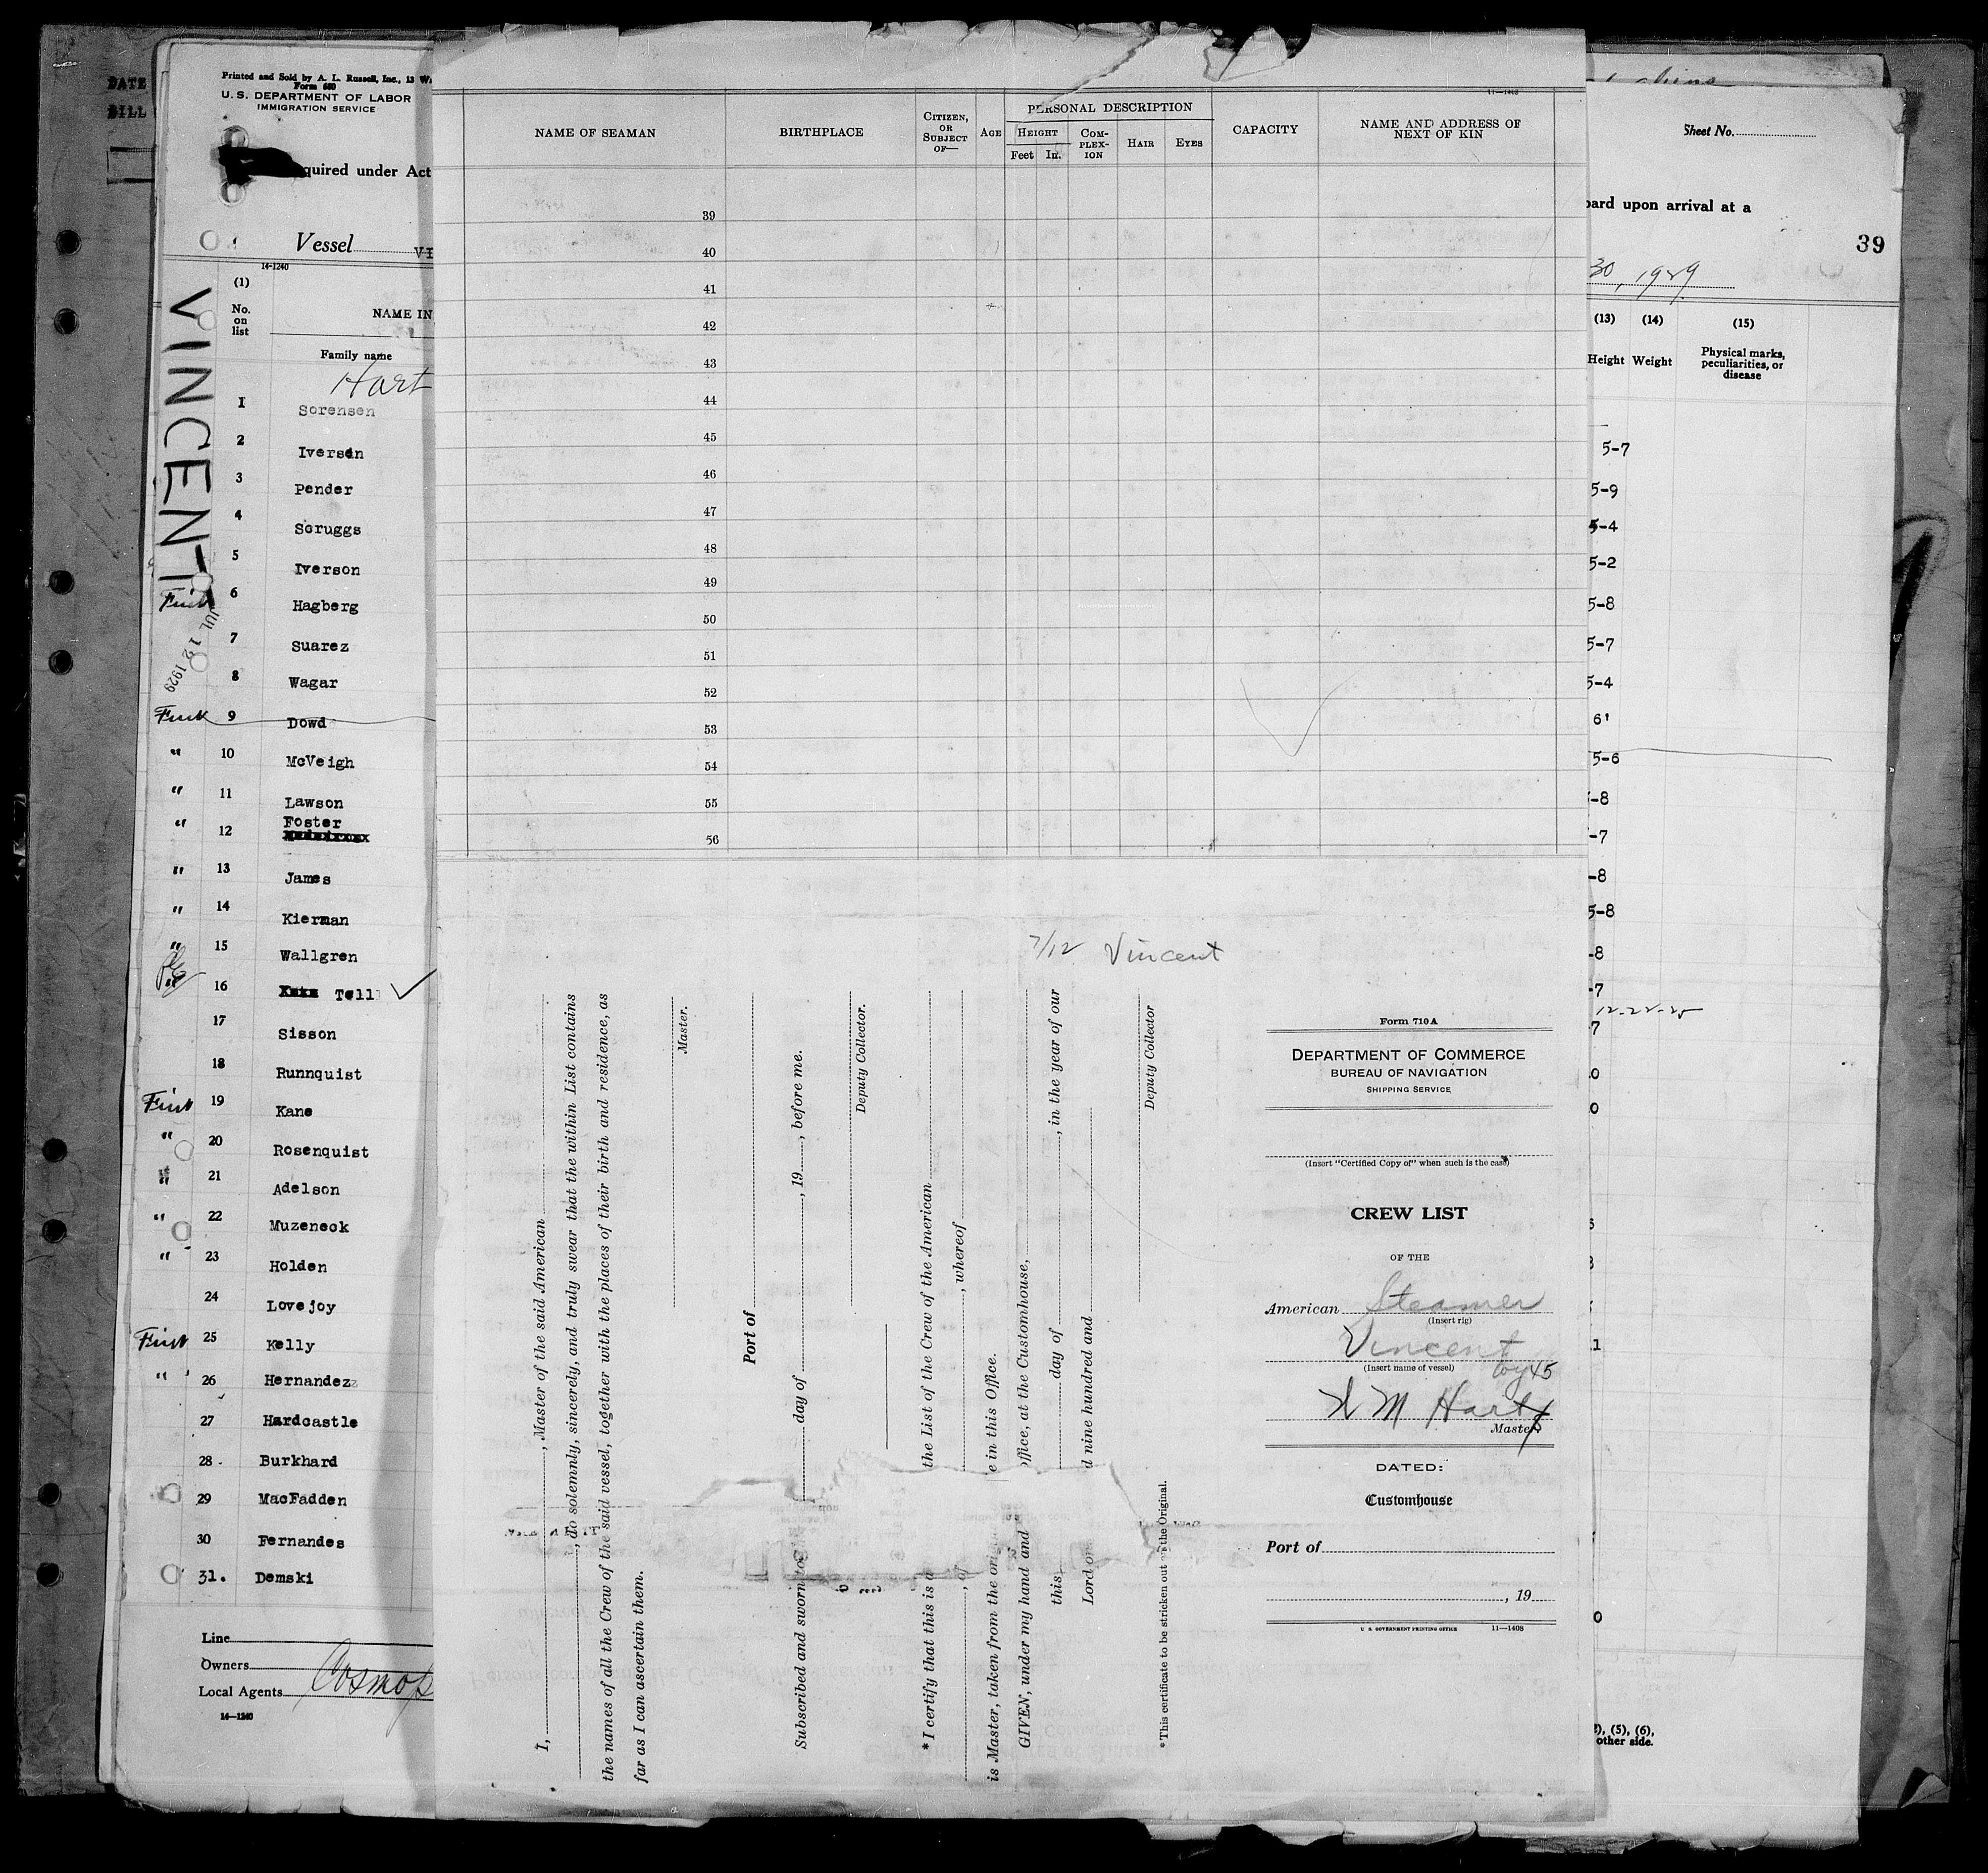 DATE
BILL
Printed and Sold by A. L. Russell, Inc., 13 W
Form 680
U. S. DEPARTMENT OF LABOR
IMMIGRATION SERVICE
quired under Act
Vessel
VI
14-1240
VINCENT
JUL 12 1929
(1)
No. on list
NAME IN
Family name
Hart
1 Sorensen
2 Iversen
3 Pender
4 Scruggs
5 Iverson
6 Hagberg
7 Suarez
8 Wagar
9 Dowd
" 10 McVeigh
" 11 Lawson
" 12 Foster
" 13 James
" 14 Kierman
" 15 Wallgren
16 Tell
17 Sisson
18 Runnquist
First 19 Kane
" 20 Rosenquist
" 21 Adelson
" 22 Muzeneck
" 23 Holden
24 Lovejoy
First 25 Kelly
" 26 Hernandez
27 Hardcastle
28 Burkhard
29 MacFadden
30 Fernandes
31. Demski
Line
Owners
Local Agents Cosmop
14—1240
11—1408
NAME OF SEAMAN
BIRTHPLACE
CITIZEN, OR SUBJECT OF—
AGE
PERSONAL DESCRIPTION
HEIGHT
Feet In.
COM-PLEX-ION
HAIR
EYES
CAPACITY
NAME AND ADDRESS OF NEXT OF KIN
39
40
41
42
43
44
45
46
47
48
49
50
51
52
53
54
55
56
7/12 Vincent
I, , Master of the said American
, do solemnly, sincerely, and truly swear that the within List contains
the names of all the Crew of the said vessel, together with the places of their birth and residence, as
far as I can ascertain them.
Master.
Port of
Subscribed and sworn to day of , 19 , before me.
Deputy Collector.
* I certify that this is a the List of the Crew of the American
, of , whereof
is Master, taken from the ori e in this Office.
GIVEN, under my hand and office, at the Customhouse,
this day of , in the year of our
Lord on d nine hundred and
Deputy Collector
* This certificate to be stricken out of the Original.
Form 710 A
DEPARTMENT OF COMMERCE
BUREAU OF NAVIGATION
SHIPPING SERVICE
(Insert "Certified Copy of" when such is the case)
CREW LIST
OF THE
American Steamer
(Insert rig)
Vincent
(Insert name of vessel)
M Hart
Master
DATED:
Customhouse
Port of
, 19
U. S. GOVERNMENT PRINTING OFFICE 11—1408
Sheet No.
oard upon arrival at a
39
30, 1929
(13) (14) (15)
Height Weight Physical marks, peculiarities, or disease
5-7
5-9
5-4
5-2
5-8
5-7
5-4
6'
5-6
-8
-7
-8
5-8
-8
-7
7
0
0
1
0
), (5), (6),
other side.